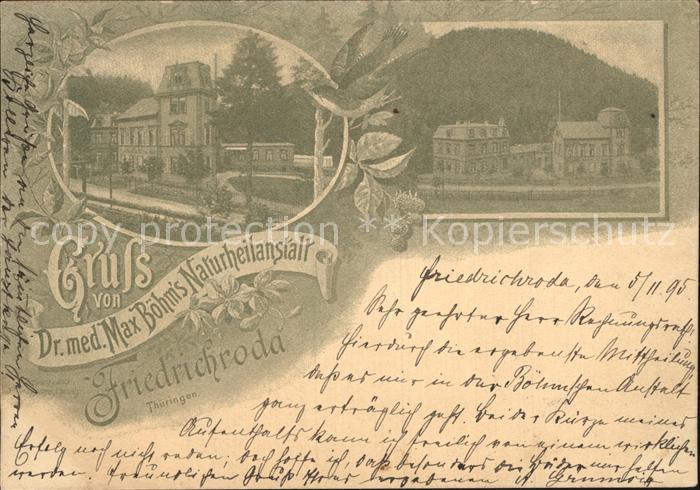 Gruß
von
Dr. med. Max Böhm's Naturheilanstalt
Friedrichroda
Thüringen.
copy protection Kopierschutz
Friedrichroda, den 5/11. 95
Sehr geehrter Herr Rechnungsrath,
Hierdurch die ergebenste Mittheilung
daß es mir in der Böhm'schen Anstalt
ganz erträglich geht. Bei der Kürze meines
Aufenthalts kann ich freilich von einem wirklichen
Erfolg noch nicht reden; doch hoffe ich, daß besonders die Bäder mir helfen
werden. Freundlichen Gruß Ihres ergebenen
Herzliche Grüße von